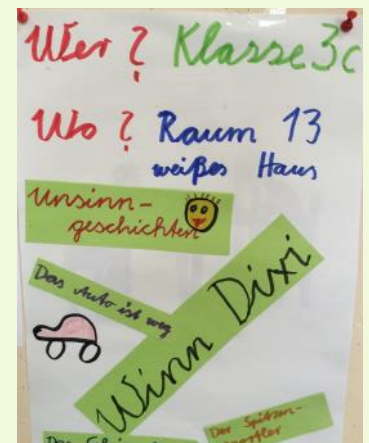 Wer? Klasse 3c
Wo? Raum 13
weißes Haus
Unsinn-
geschichten
Das Auto ist weg
Winn Dixi
Der Spitzen-